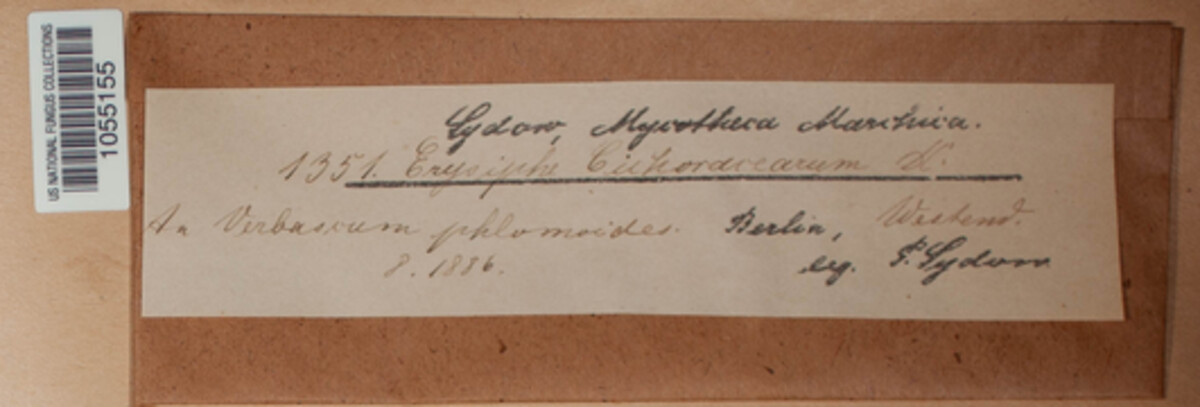 US NATIONAL FUNGUS COLLECTIONS
1055155
Sydow, Mycotheca Marchica.
1351. Erysiphe Cichoracearum
An Verbascum phlomoides. Berlin, Westend.
8. 1886. leg. P. Sydow